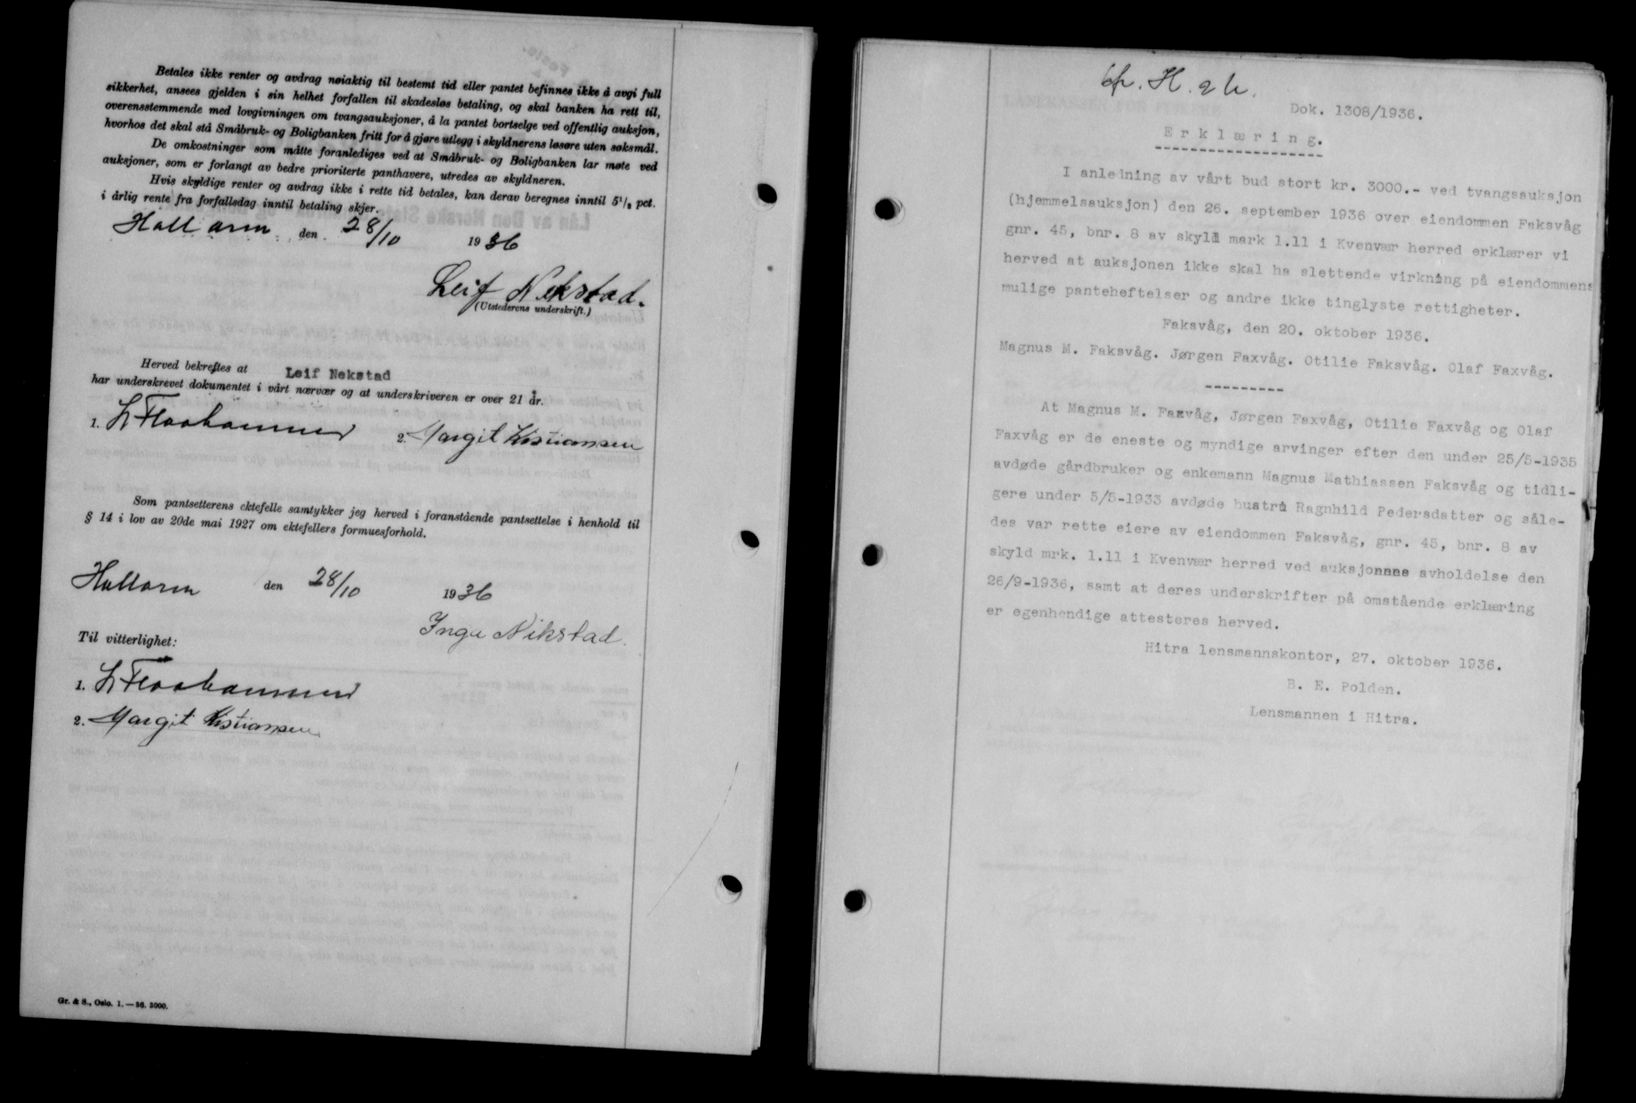 Betales ikke renter og avdrag nøiaktig til bestemt tid eller pantet befinnes ikke å avgi full
sikkerhet, ansees gjelden i sin helhet forfallen til skadesløs betaling, og skal banken ha rett til,
overensstemmende med lovgivningen om tvangsauksjoner, å la pantet bortselge ved offentlig auksjon,
hvorhos det skal stå Småbruk- og Boligbanken fritt for å gjøre utlegg i skyldnerens løsøre uten søksmål.
De omkostninger som måtte foranlediges ved at Småbruk- og Boligbanken lar møte ved
auksjoner, som er forlangt av bedre prioriterte panthavere, utredes av skyldneren.
Hvis skyldige renter og avdrag ikke i rette tid betales, kan derav beregnes inntil 5½ pct.
i årlig rente fra forfallsdag inntil betaling skjer.
den 28/10 1936
Leif Nekstad.
(Utstederens underskrift.)
Herved bekreftes at Leif Nekstad
har underskrevet dokumentet i vårt nærvær og at underskriveren er over 21 år.
1. 2. Margit Kristiansen
Som pantsetterens ektefelle samtykker jeg herved i foranstående pantsettelse i henhold til
§ 14 i lov av 20de mai 1927 om ektefellers formuesforhold.
den 28/10 1936
Inga Nekstad.
Til vitterlighet:
1.
2. Margit Kristiansen
Gr. & S., Oslo. 1.—36. 3000.
Dok. 1308/1936.
Erklæring.
I anledning av vårt bud stort kr. 3000.- ved tvangsauksjon
(hjemmelsauksjon) den 26. september 1936 over eiendommen Faksvåg
gnr. 45, bnr. 8 av skyld mark 1.11 i Kvenvær herred erklærer vi
herved at auksjonen ikke skal ha slettende virkning på eiendommens
mulige panteheftelser og andre ikke tinglyste rettigheter.
Faksvåg, den 20. oktober 1936.
Magnus M. Faksvåg. Jørgen Faxvåg. Otilie Faksvåg. Olaf Faxvåg.
----------
At Magnus M. Faxvåg, Jørgen Faxvåg, Otilie Faxvåg og Olaf
Faxvåg er de eneste og myndige arvinger efter den under 25/5-1935
avdøde gårdbruker og enkemann Magnus Mathiassen Faksvåg og tidli-
gere under 5/5-1933 avdøde hustru Ragnhild Pedersdatter og såle-
des var rette eiere av eiendommen Faksvåg, gnr. 45, bnr. 8 av
skyld mrk. 1.11 i Kvenvær herred ved auksjonens avholdelse den
26/9-1936, samt at deres underskrifter på omstående erklæring
er egenhendige attesteres herved.
Hitra lensmannskontor, 27. oktober 1936.
B. E. Polden.
Lensmannen i Hitra.